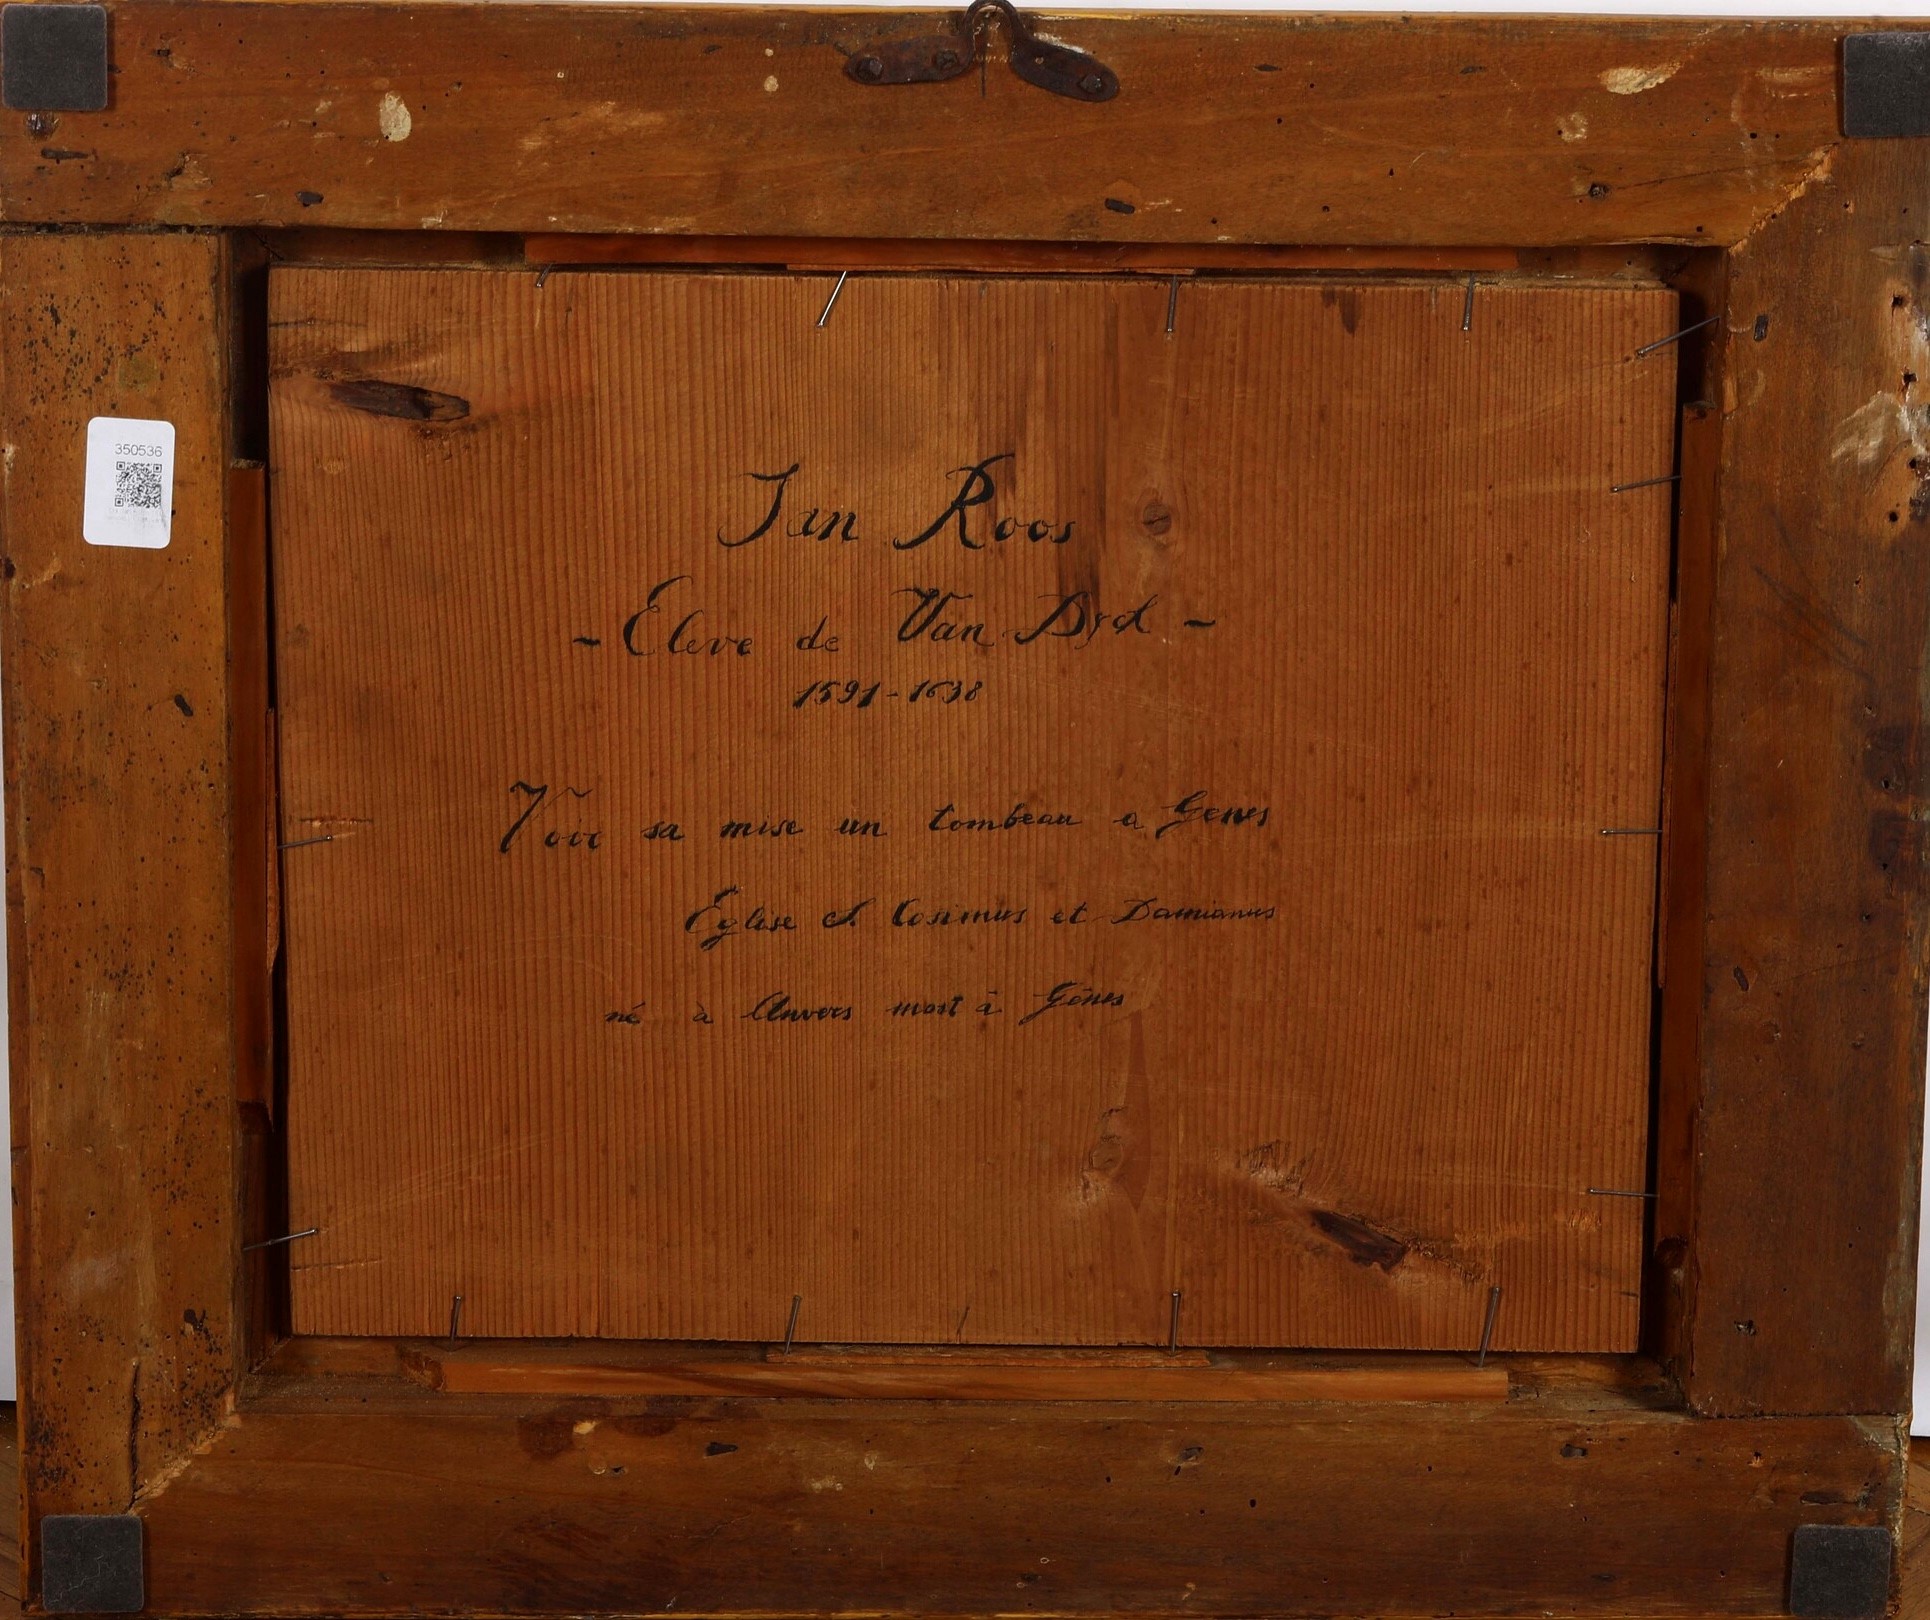 350536
Jan Roos
- Eleve de Van Dyck -
1591-1638
Voir sa mise un tombeau a Genes
Église S. Cosimus et Damianus
né à Anvers mort à Gênes